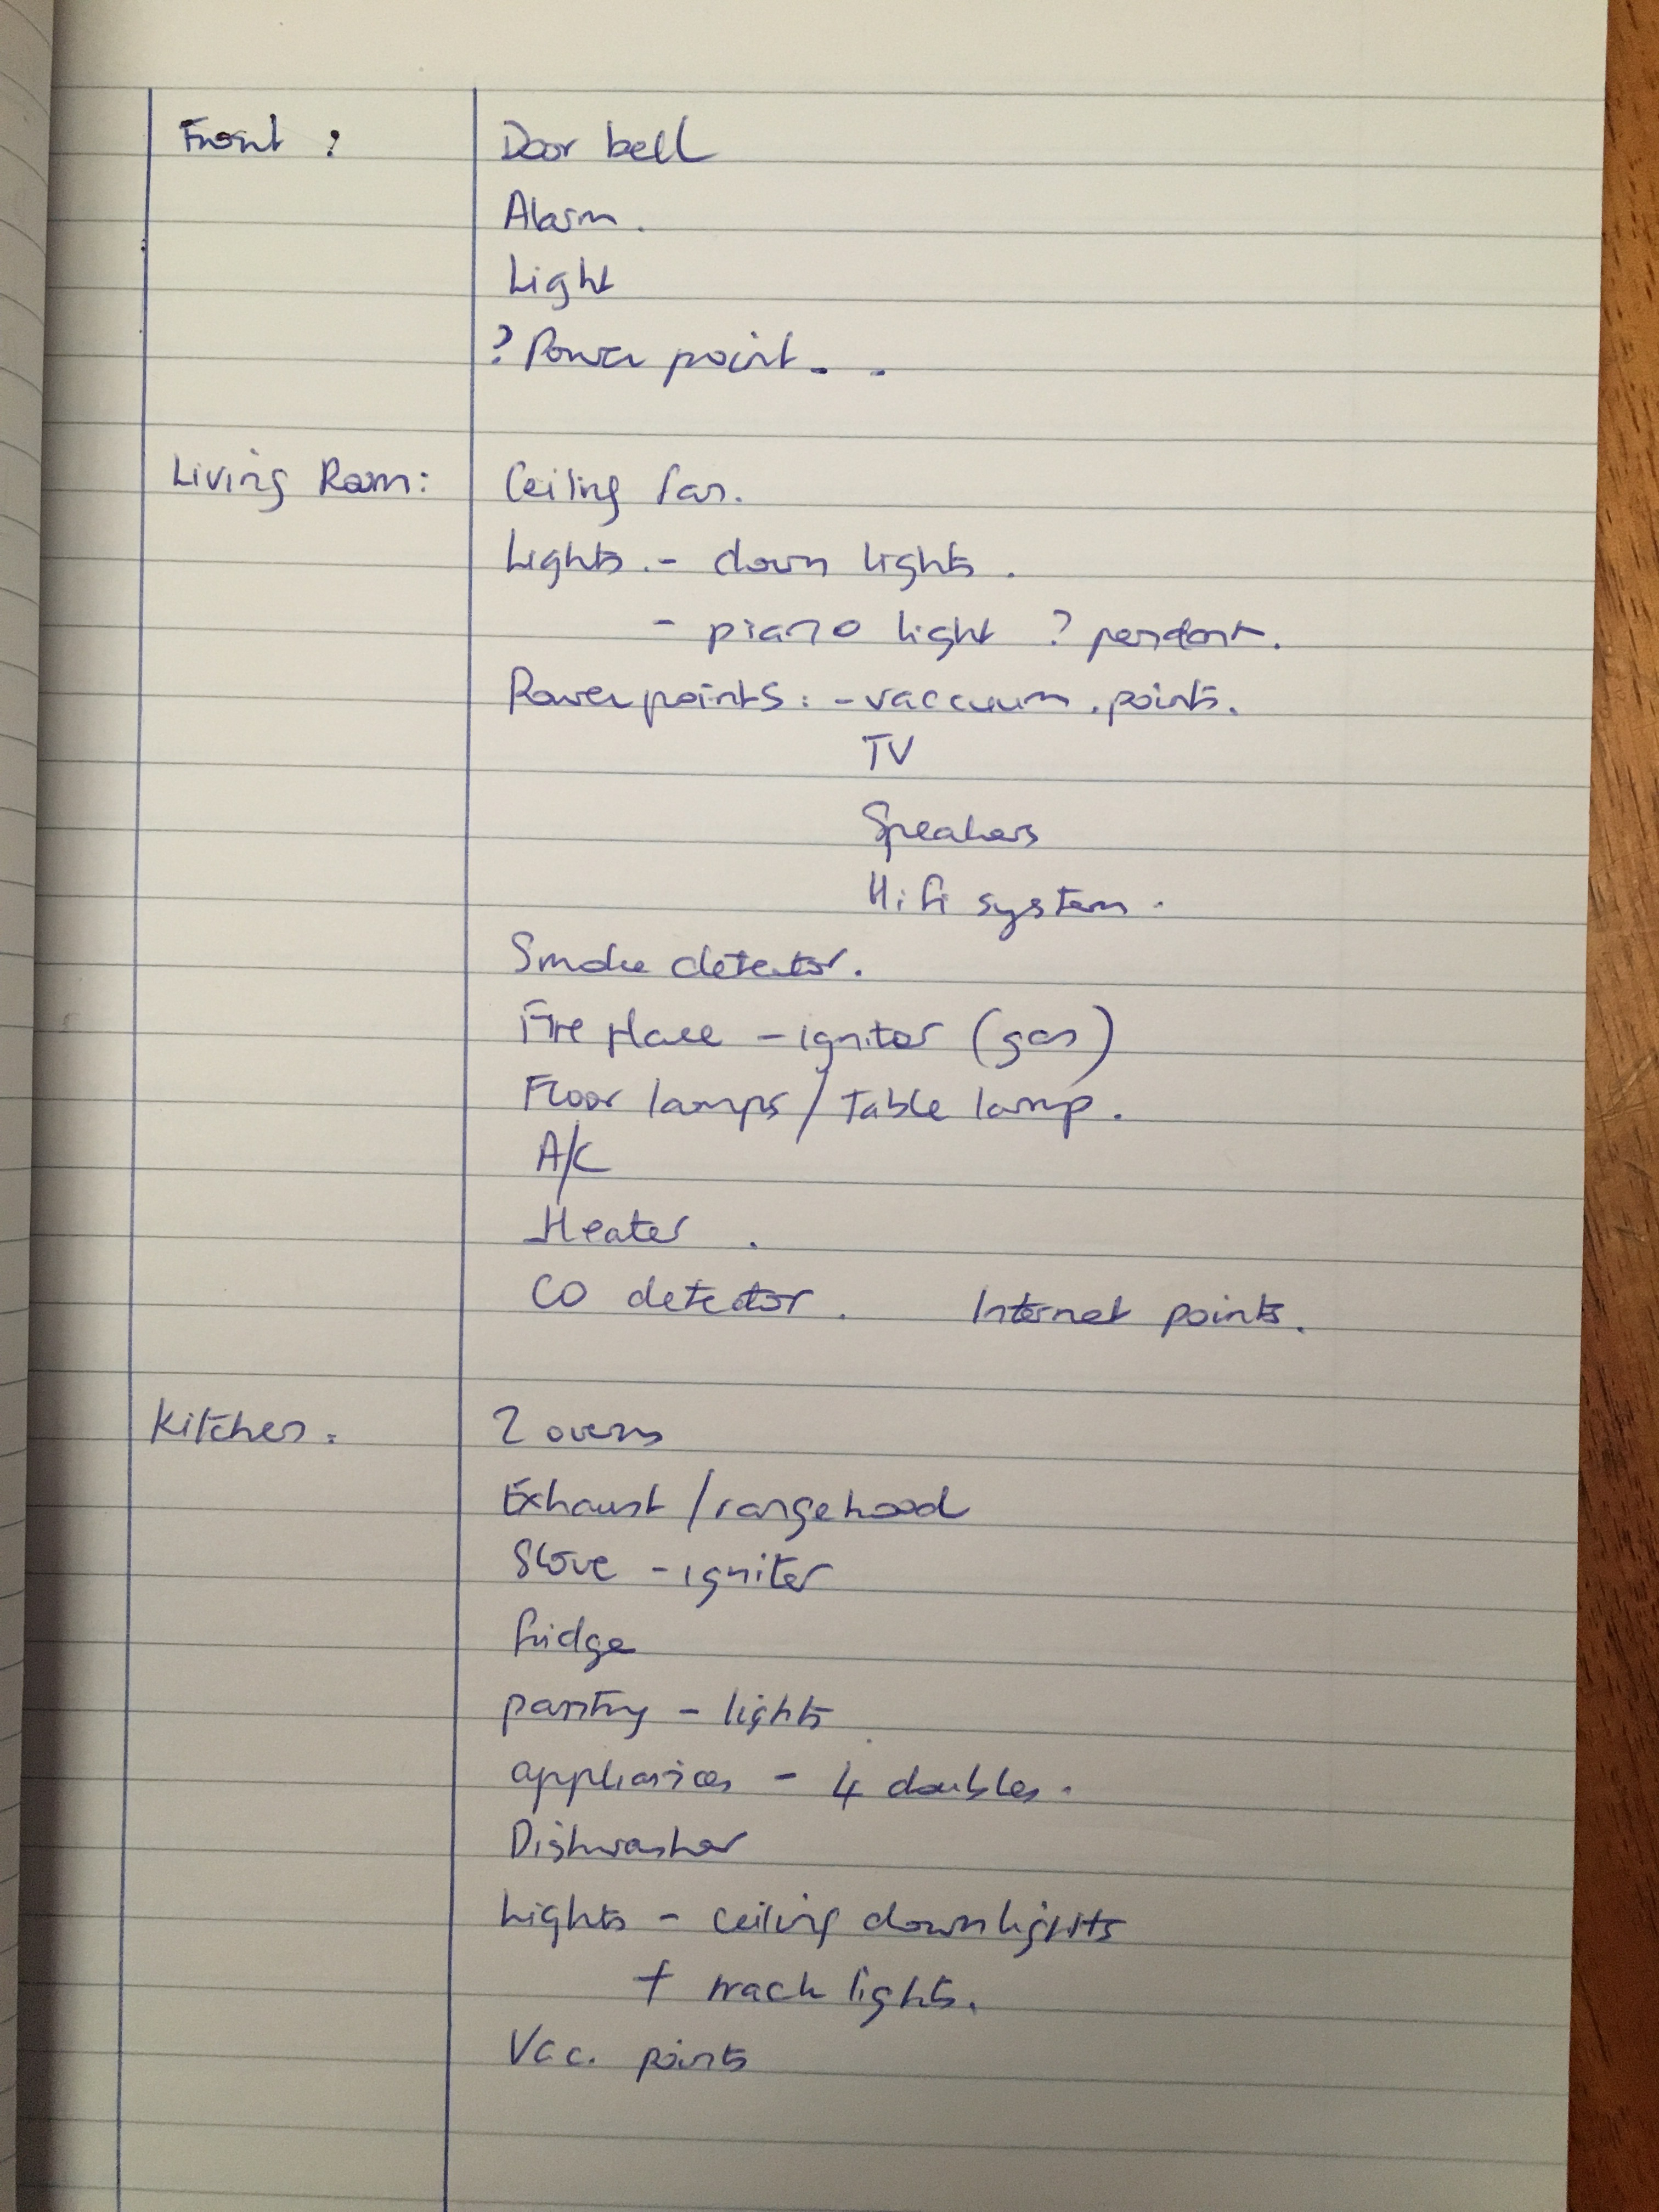 Front : Door bell
Alarm.
Light
? Power point. .
Living Room: Ceiling fan.
Lights. - down lights.
- piano light ? pendant.
Powerpoints: - vaccuum .points.
TV
Speakers
Hifi system.
Smoke detector.
Fire place - ignitor (gas)
Floor lamps / Table lamp.
A/C
Heater .
CO detector. Internet points.
Kitchen: 2 ovens
Exhaust / rangehood
Stove - igniter
fridge
pantry - lights
appliances - 4 doubles.
Dishwasher
Lights - ceiling downlights
+ track lights.
Vac. points